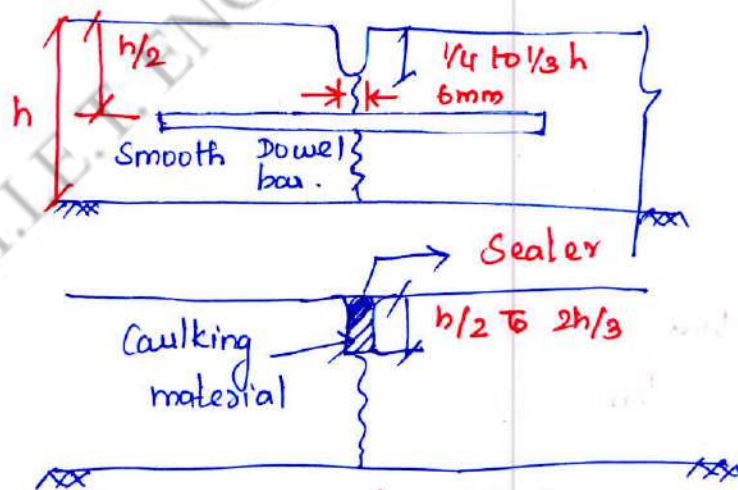 I.E.T. ENG
h/2
1/4 to 1/3 h
h
6mm
Smooth Dowel
bar.
Sealer
h/2 to 2h/3
Caulking
material